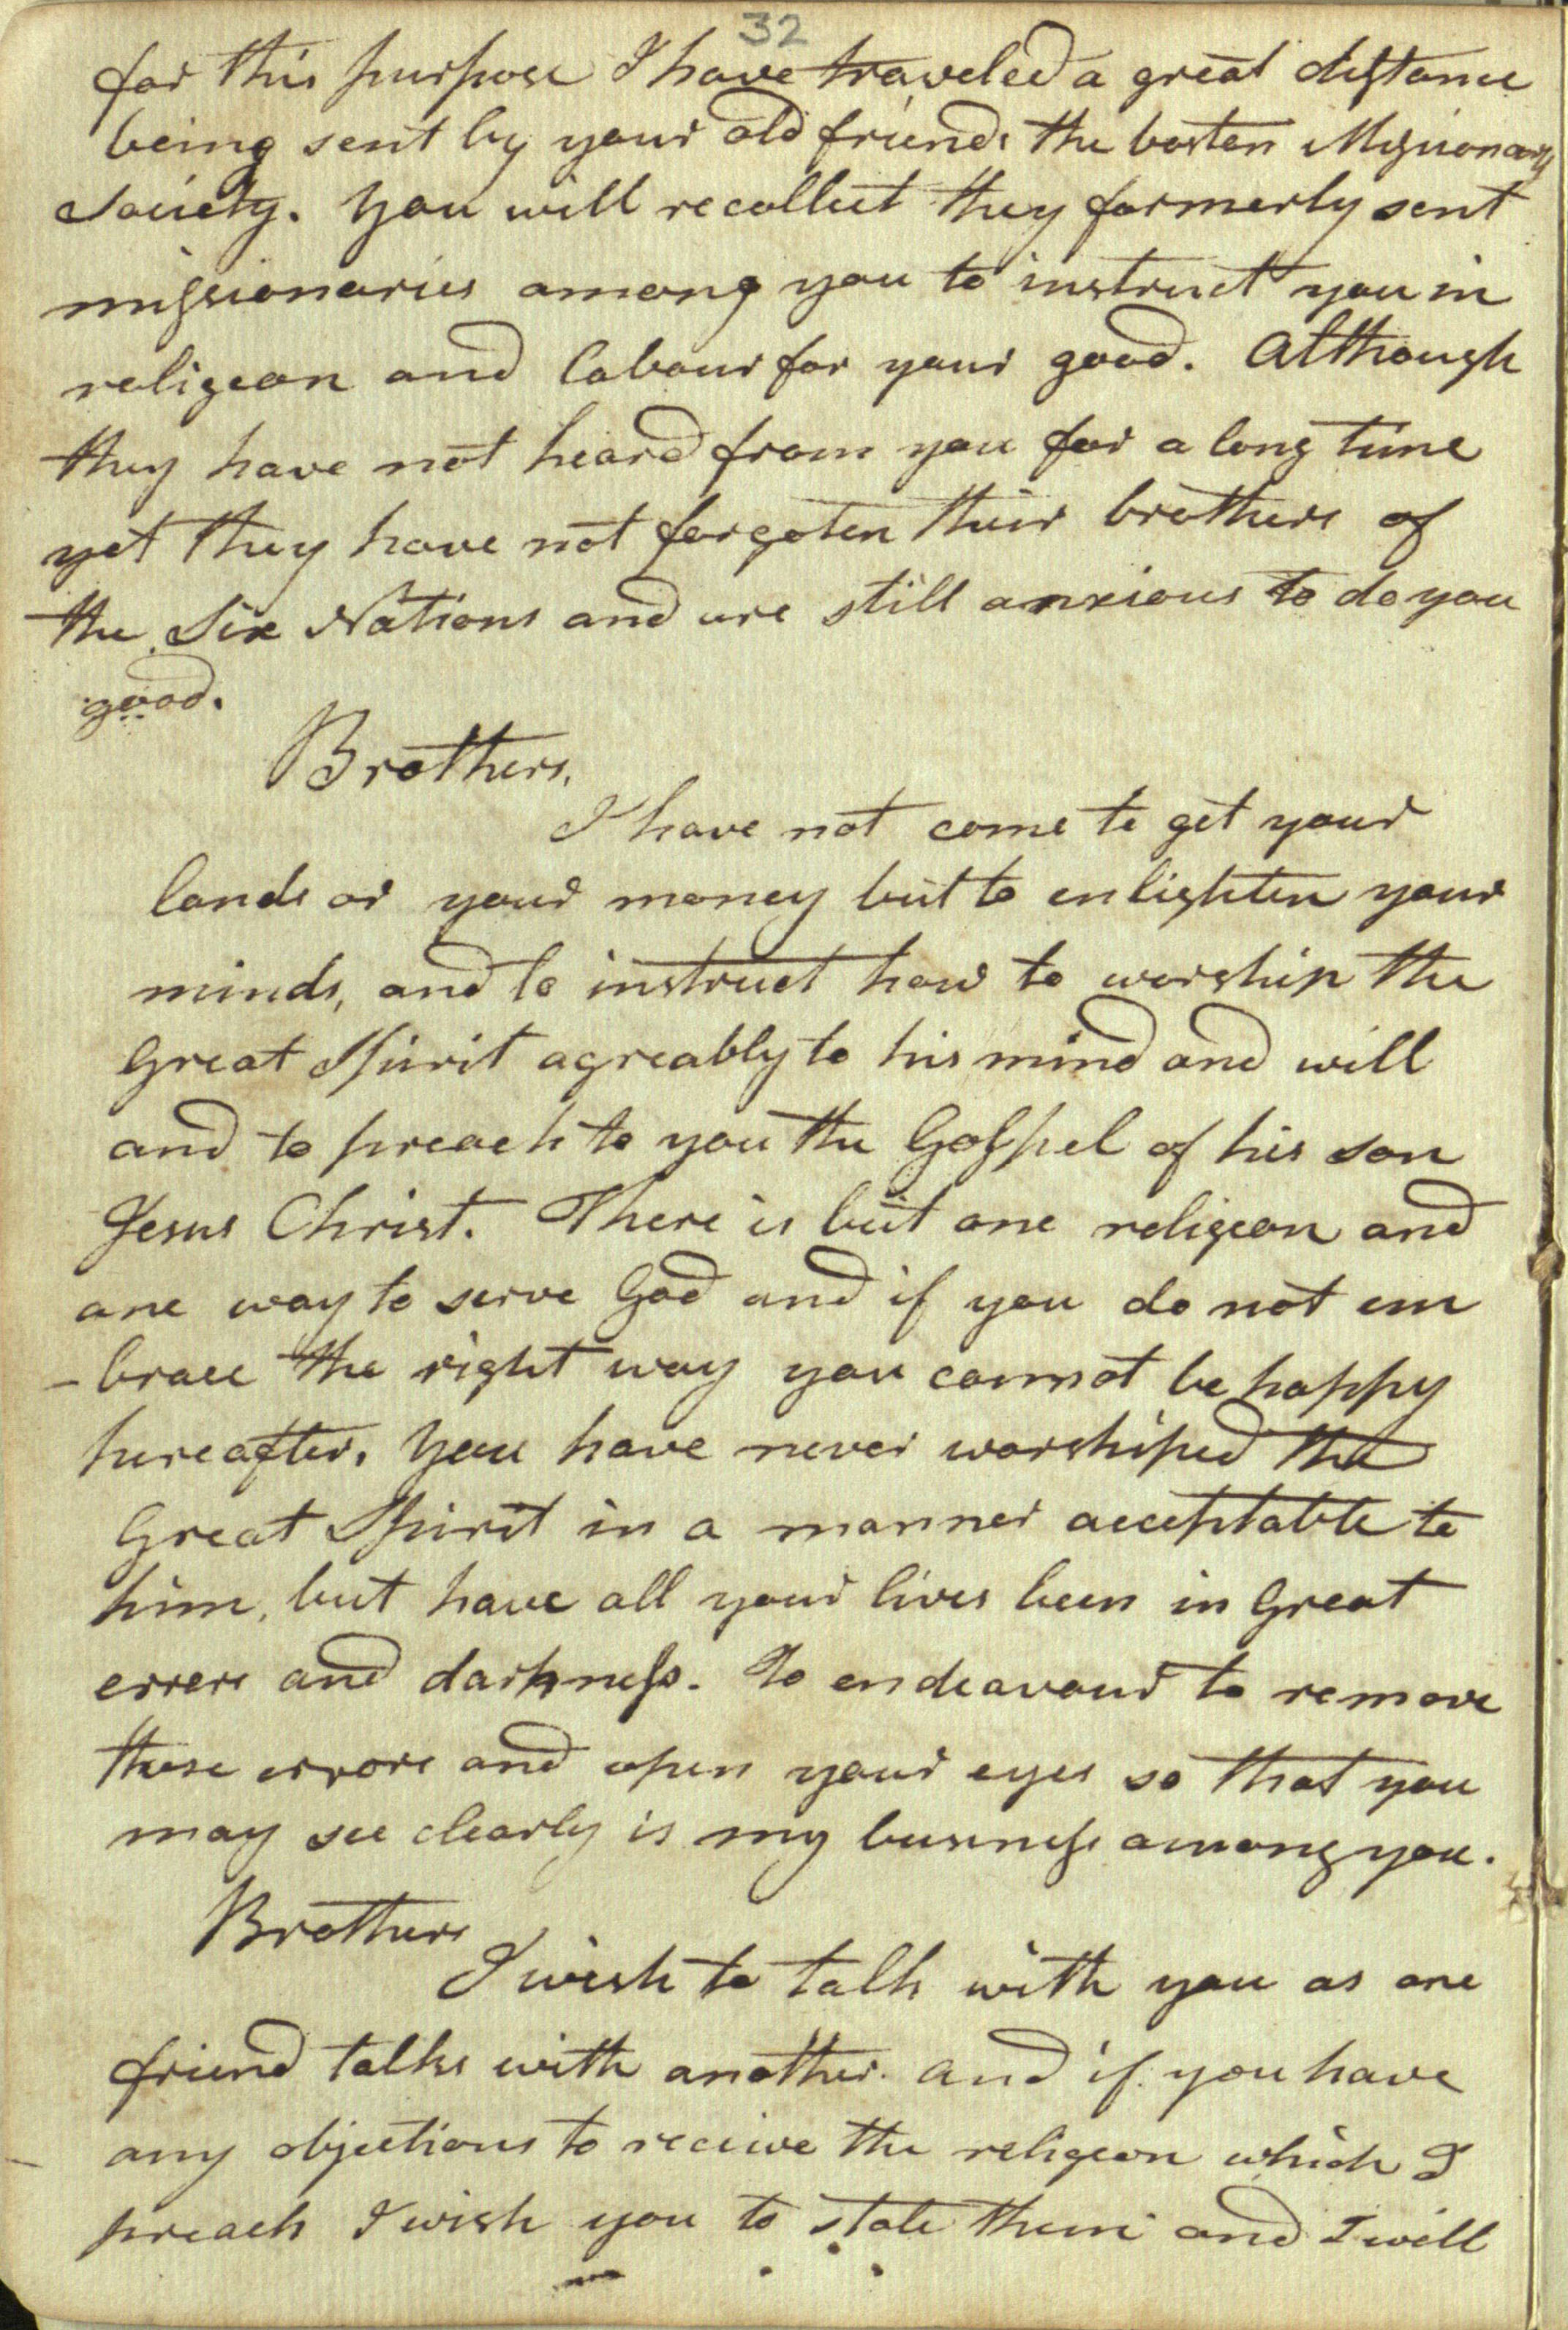 32
for this purpose I have traveled a great distance
being sent by your old friends the boston Missionary
Society. You will recollect they formerly sent
missionaries among you to instruct you in
religeon and labour for your good. Although
they have not heard from you for a long time
yet they have not forgoten their brothers of
the Six Nations and are still anxious to do you
good.
Brothers,
I have not come to get your
lands or your money but to enlighten your
minds, and to instruct how to worship the
Great Spirit agreably to his mind and will
and to preach to you the Gospel of his son
Jesus Christ. There is but one religeon and
one way to serve God and if you do not em
-brace the right way you cannot be happy
hereafter. You have never worshiped the
Great Spirit in a manner acceptable to
him, but have all your lives been in Great
errors and darkness. To endeavour to remove
these errors and open your eyes so that you
may see clearly is my business among you.
Brothers
I wish to talk with you as one
friend talks with another. and if you have
any objections to receive the religeon which I
preach I wish you to state them and I will